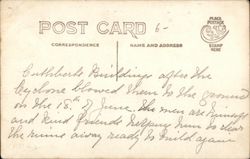 POST CARD 6-
PLACE POSTAGE
STAMP HERE
CORRESPONDENCE NAME AND ADDRESS
Cuthberts Buildings after the
Cyclone blowed them to the ground
on the 18th of June. The men are himself
and kind friends helping him to clear
the ruins away ready to build again